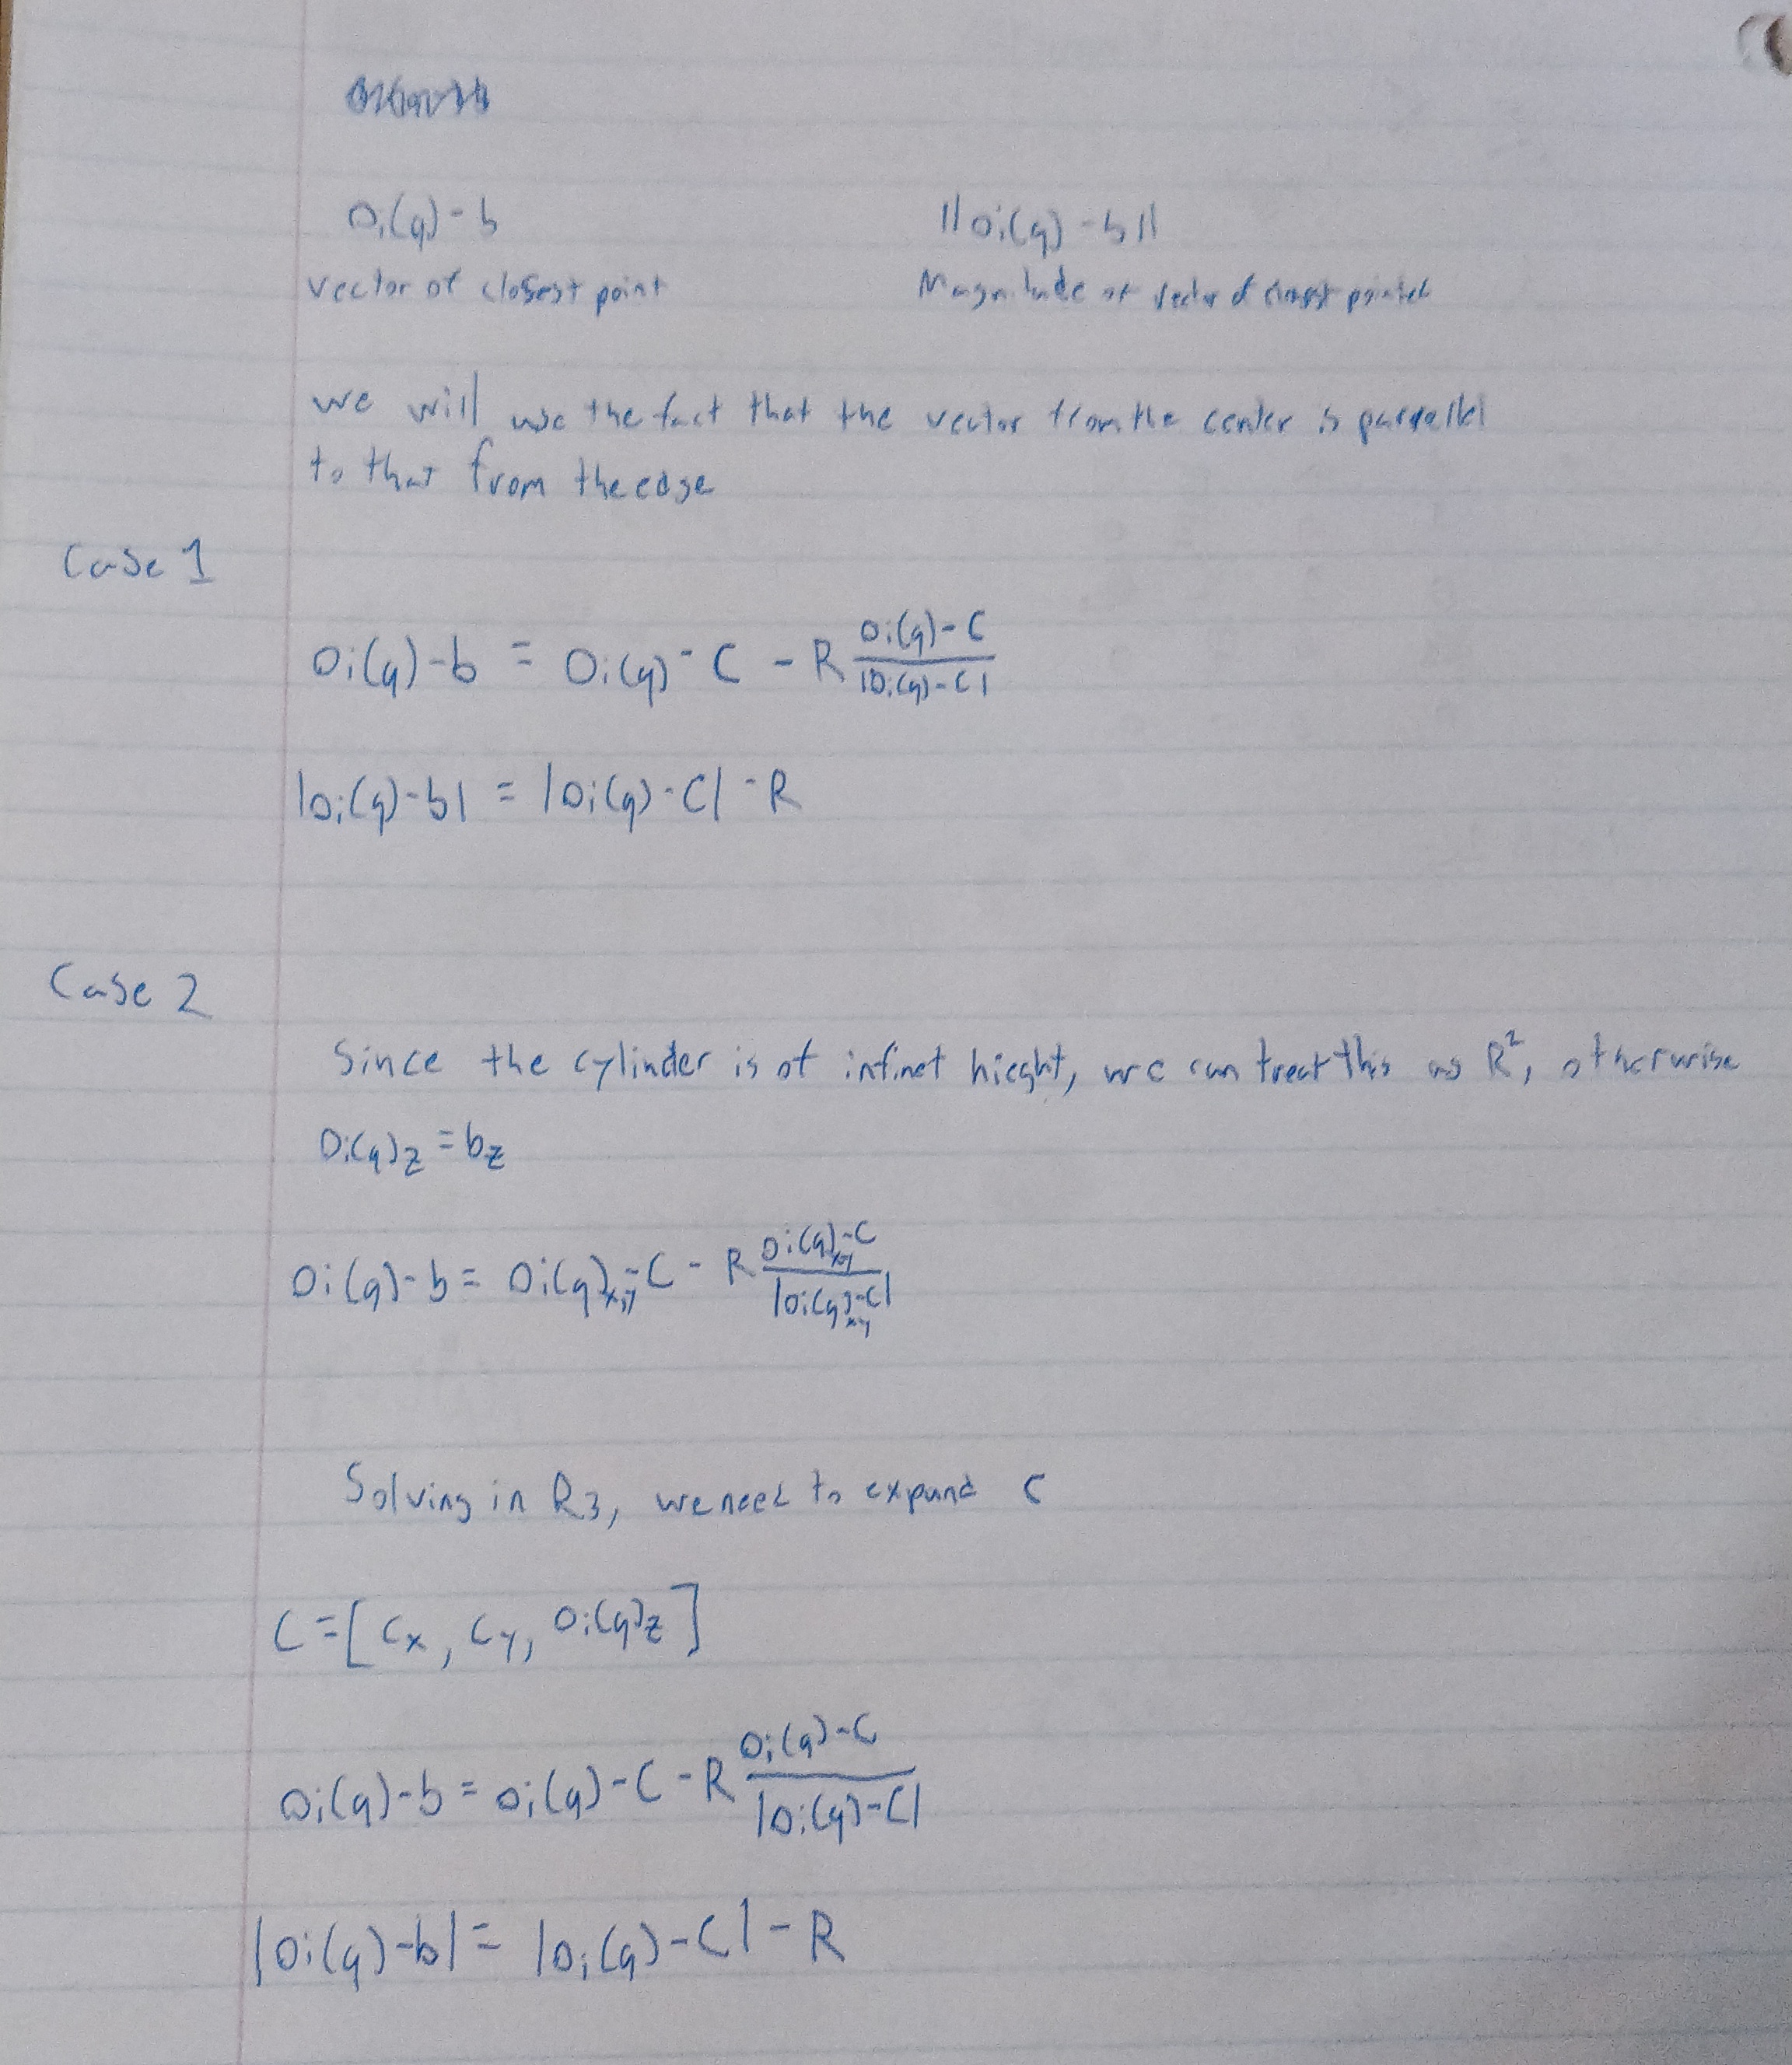 Oi(q) - b    ||Oi(q) - b||
vector of closest point    Magnitude of vector of closest
we will use the fact that the vector from the center is parrallel
to that from the edge
Case 1
Oi(q) - b = Oi(q) - C - R (Oi(q) - C)/|Oi(q) - C|
|Oi(q) - b| = |Oi(q) - C| - R
Case 2
Since the cylinder is of infinet hieght, we can treat this as R², otherwise
Oi(q)z = bz
Oi(q) - b = Oi(q)x,y - C - R (Oi(q)x,y - C)/|Oi(q)x,y - C|
Solving in R3, we need to expand C
C = [Cx, Cy, Oi(q)z]
Oi(q) - b = Oi(q) - C - R (Oi(q) - C)/|Oi(q) - C|
|Oi(q) - b| = |Oi(q) - C| - R